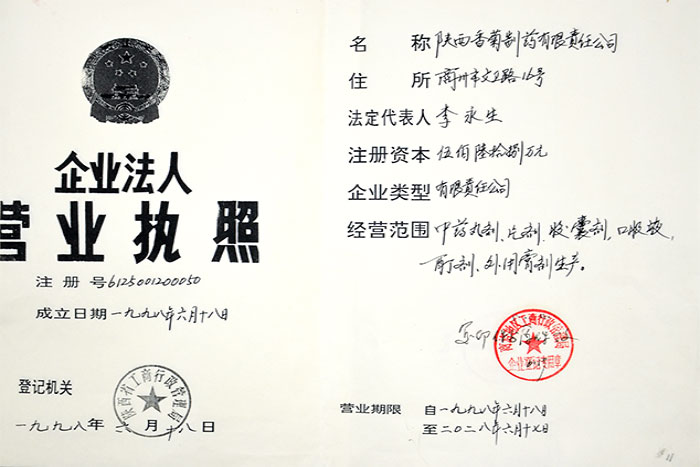 企业法人
营业执照
注 册 号 6125001200050
成立日期 一九九八年六月十八日
登记机关
陕西省工商行政管理局
一九九八年 六 月 十八 日
名 称 陕西香菊制药有限责任公司
住 所 商州市文卫路16号
法定代表人 李永生
注册资本 伍佰陆拾捌万元
企业类型 有限责任公司
经营范围 中药丸剂、片剂、胶囊剂、口服液、
酊剂、外用膏剂生产。
工商行政管理局
企业登记专用章
营业期限 自一九九八年六月十八日
至二〇二八年六月十七日